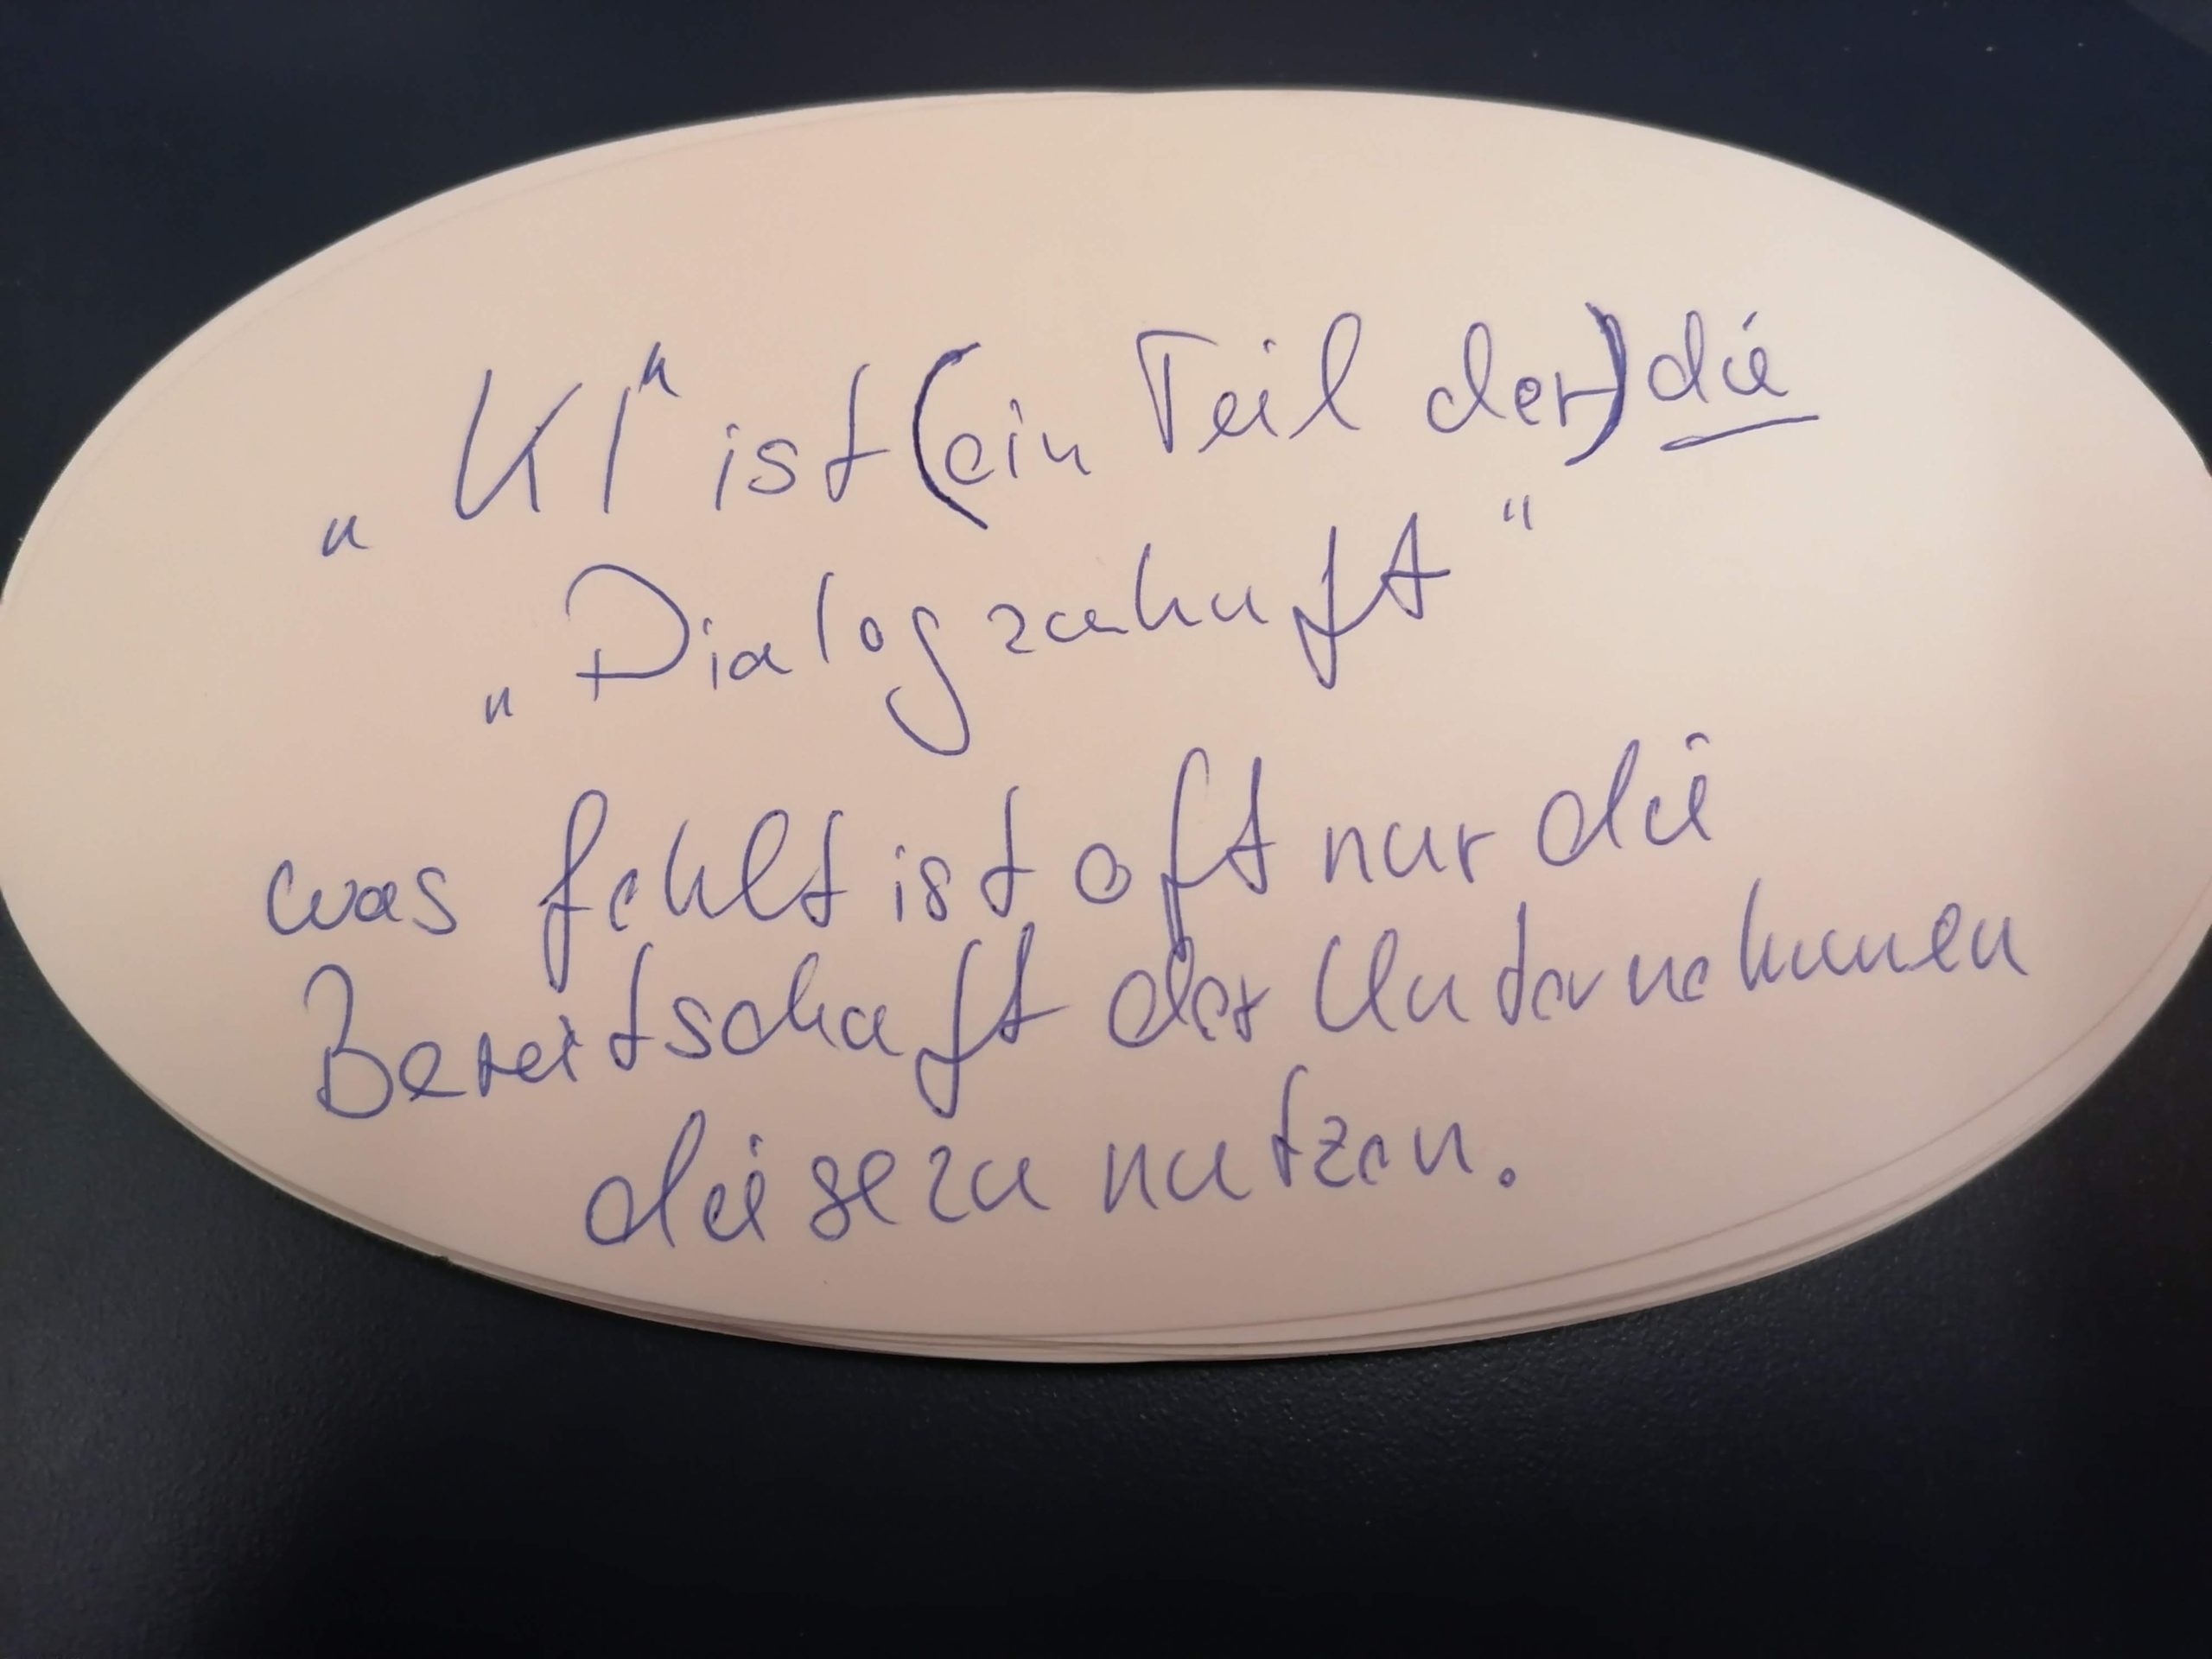 „KI“ ist (ein Teil der) die
„Dialogzukuft“
was fehlt ist oft nur die
Bereitschaft der Unternehmen
diese zu nutzen.